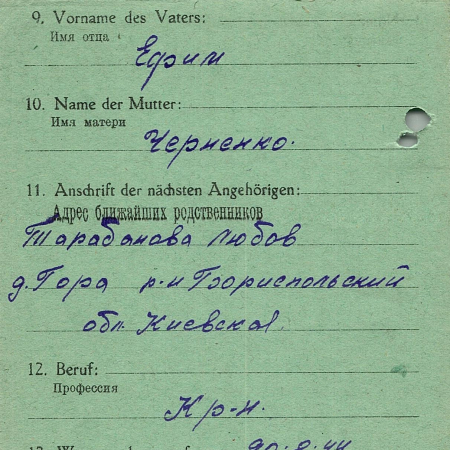 9. Vorname des Vaters:
Имя отца
Ефим
10. Name der Mutter:
Имя матери
Черненко.
11. Anschrift der nächsten Angehörigen:
Адрес ближайших родственников
Тарабанова Любов
д. Гора р-н Бориспольский
обл. Киевская.
12. Beruf:
Профессия
Кр-н.